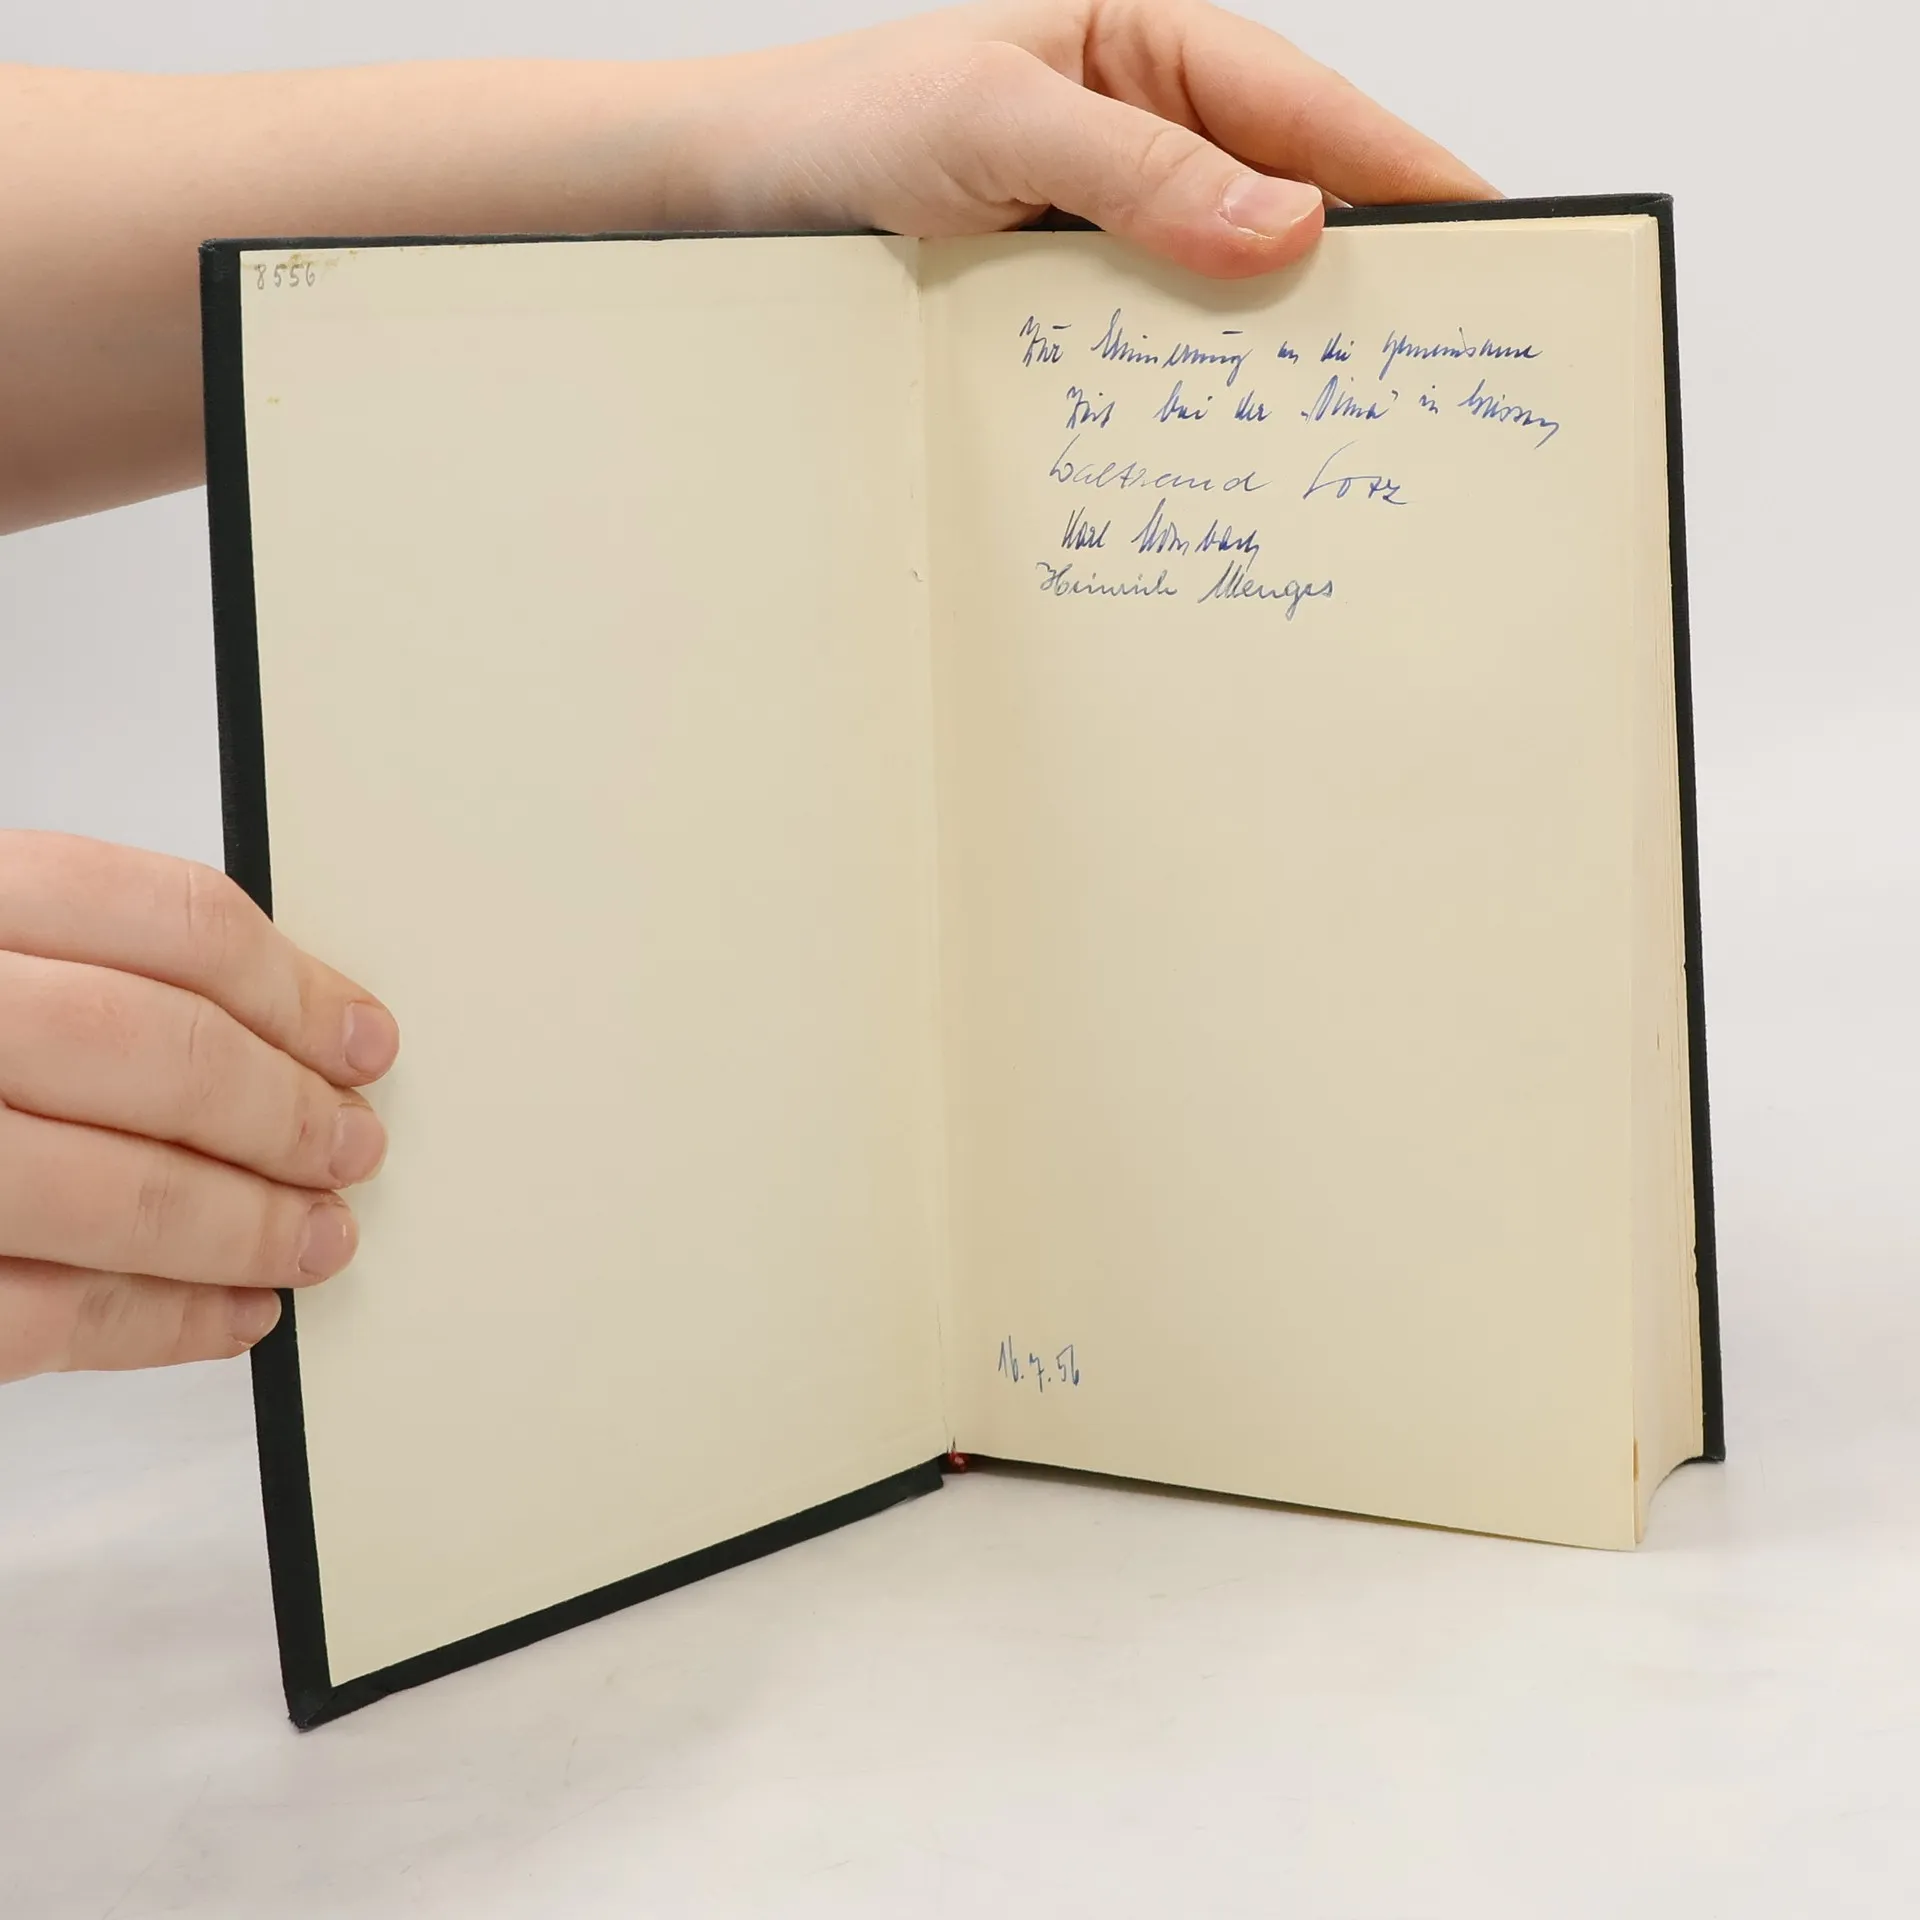 8556
Zur Erinnerung an die gemeinsame
Zeit bei der „Dima" in Giessen
Waltraud Lotz
Karl
Heinrich Menges
16.7.56